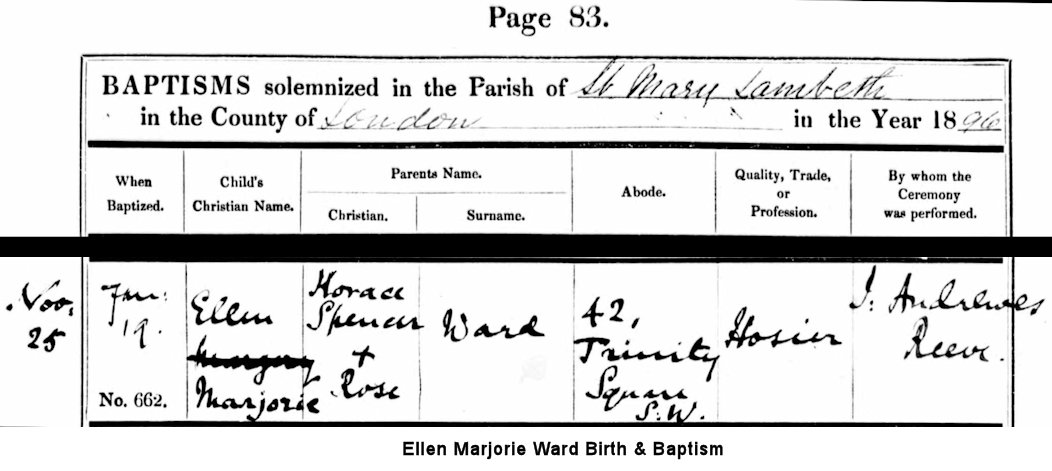 Page 83.
BAPTISMS solemnized in the Parish of St Mary Lambeth
in the County of London in the Year 1896
When Baptized.
Child's Christian Name.
Parents Name.
Christian.
Surname.
Abode.
Quality, Trade, or Profession.
By whom the Ceremony was performed.
Nov. 25
Jan: 19.
No. 662.
Ellen
Margery
Marjorie
Horace
Spencer
+
Rose
Ward
42,
Trinity
Square
S.W.
Hosier
J. Andrewes
Reeve.
Ellen Marjorie Ward Birth & Baptism